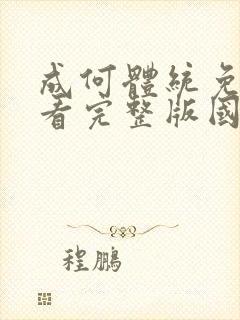 成何體統免
看完整版國
程鵬